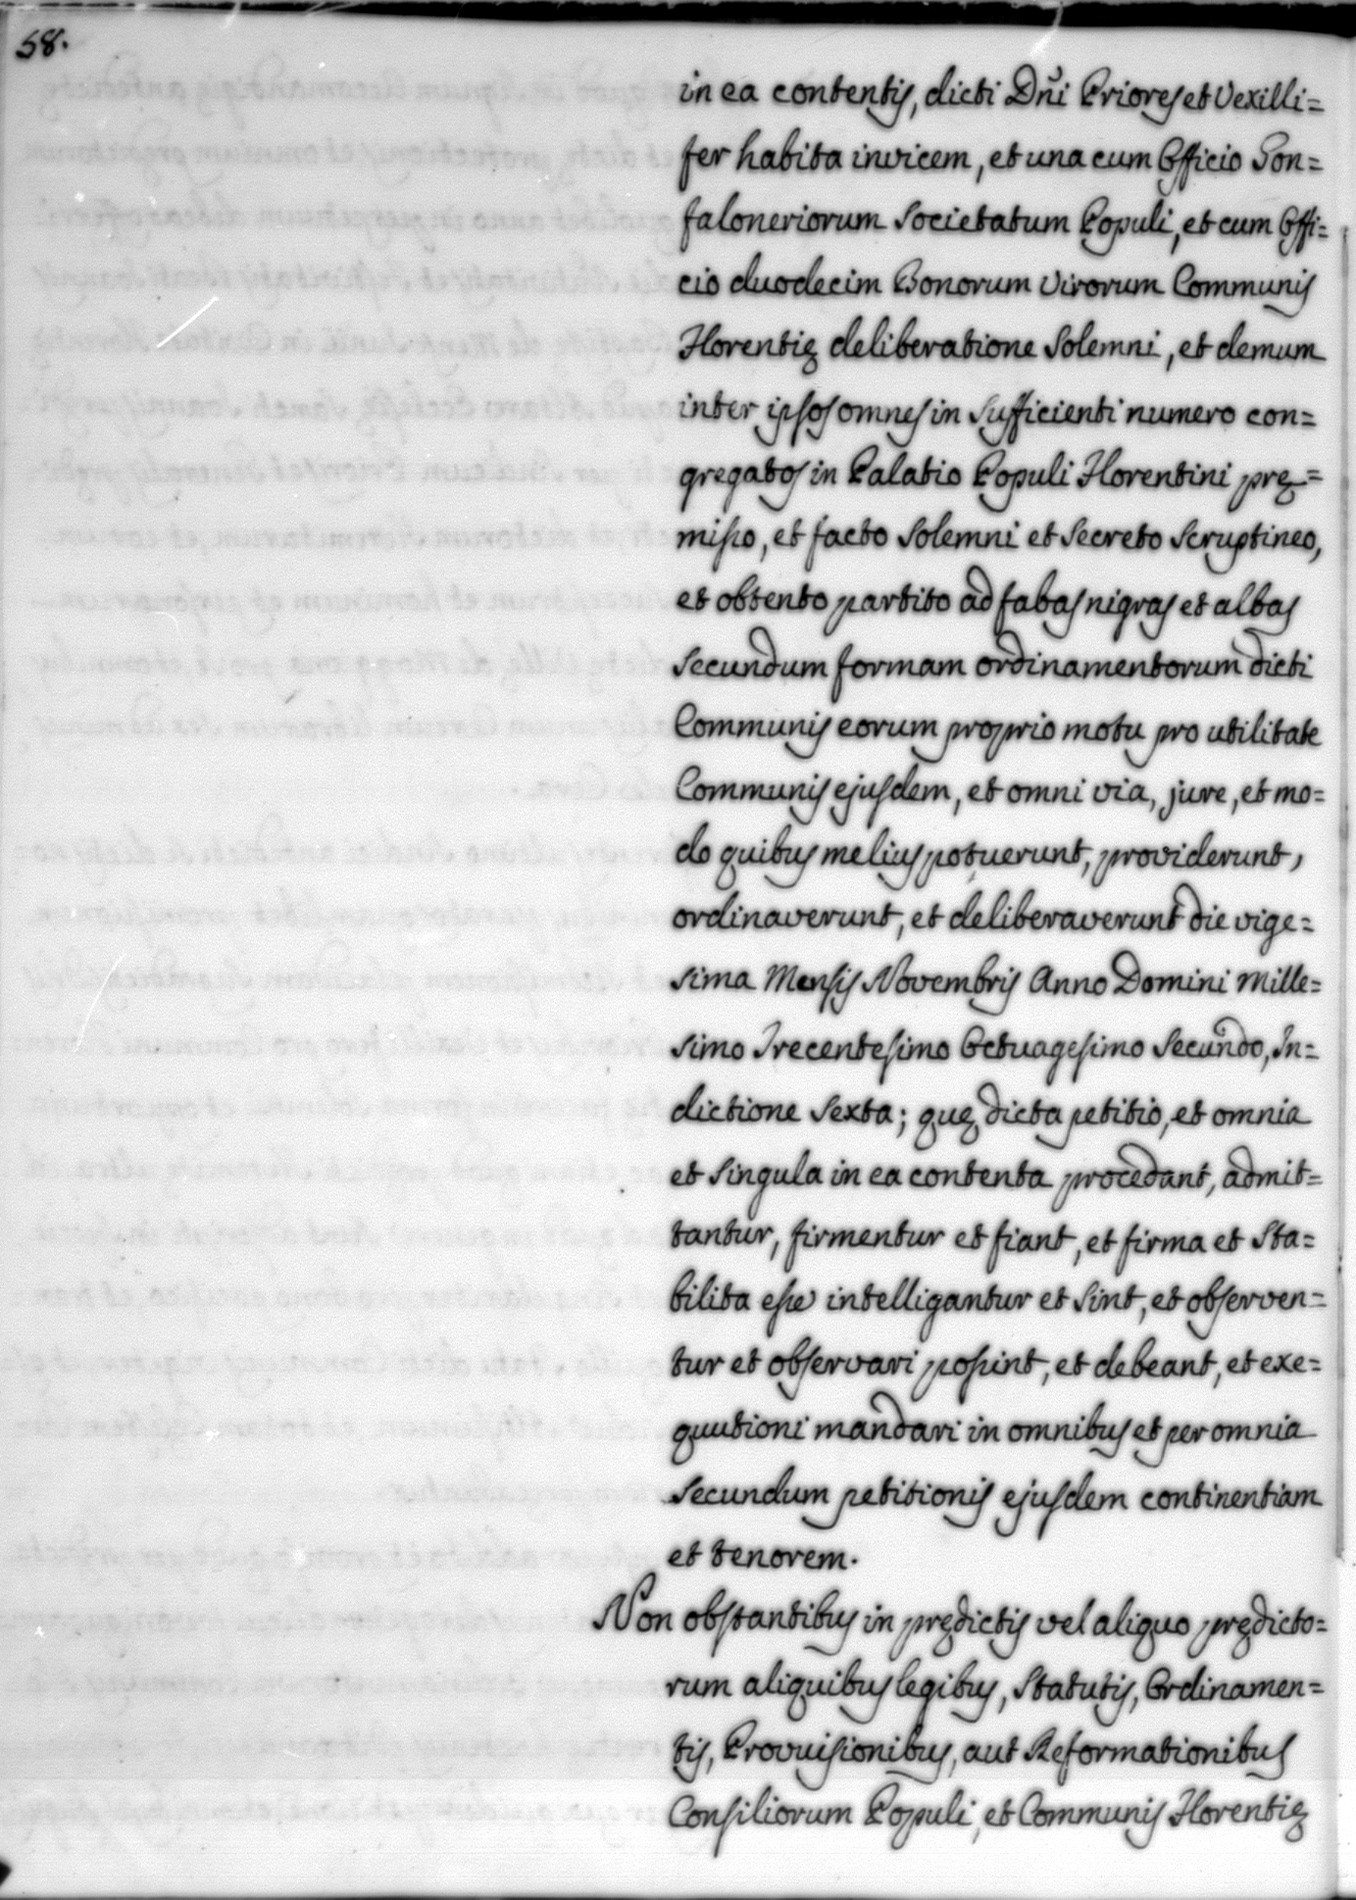 58.
in ea contentis, dicti Dñi Priores et Vexilli=
fer habita invicem, et una cum Officio Gon=
faloneriorum Societatum Populi, et cum Offi=
cio duodecim Bonorum Virorum Communis
Florentię deliberatione Solemni, et demum
inter ipsos omnes in Sufficienti numero con=
gregatos in Palatio Populi Florentini prę=
misso, et facto Solemni et Secreto Scruptineo,
et obtento partito ad fabas nigras et albas
Secundum formam ordinamentorum dicti
Communis eorum proprio motu pro utilitate
Communis ejusdem, et omni via, jure, et mo=
do quibus melius potuerunt, providerunt,
ordinaverunt, et deliberaverunt die vige=
sima Mensis Novembris Anno Domini Mille=
simo Trecentesimo Octuagesimo Secundo, In=
dictione Sexta; quę dicta petitio, et omnia
et Singula in ea contenta procedant, admit=
tantur, firmentur et fiant, et firma et Sta=
bilita esse intelligantur et Sint, et observen=
tur et observari possint, et debeant, et exe=
quutioni mandari in omnibus et per omnia
Secundum petitionis ejusdem continentiam
et tenorem.
Non obstantibus in prędictis vel aliquo prędicto=
rum aliquibus legibus, Statutis, Ordinamen=
tis, Provvisionibus, aut Reformationibus
Consiliorum Populi, et Communis Florentię